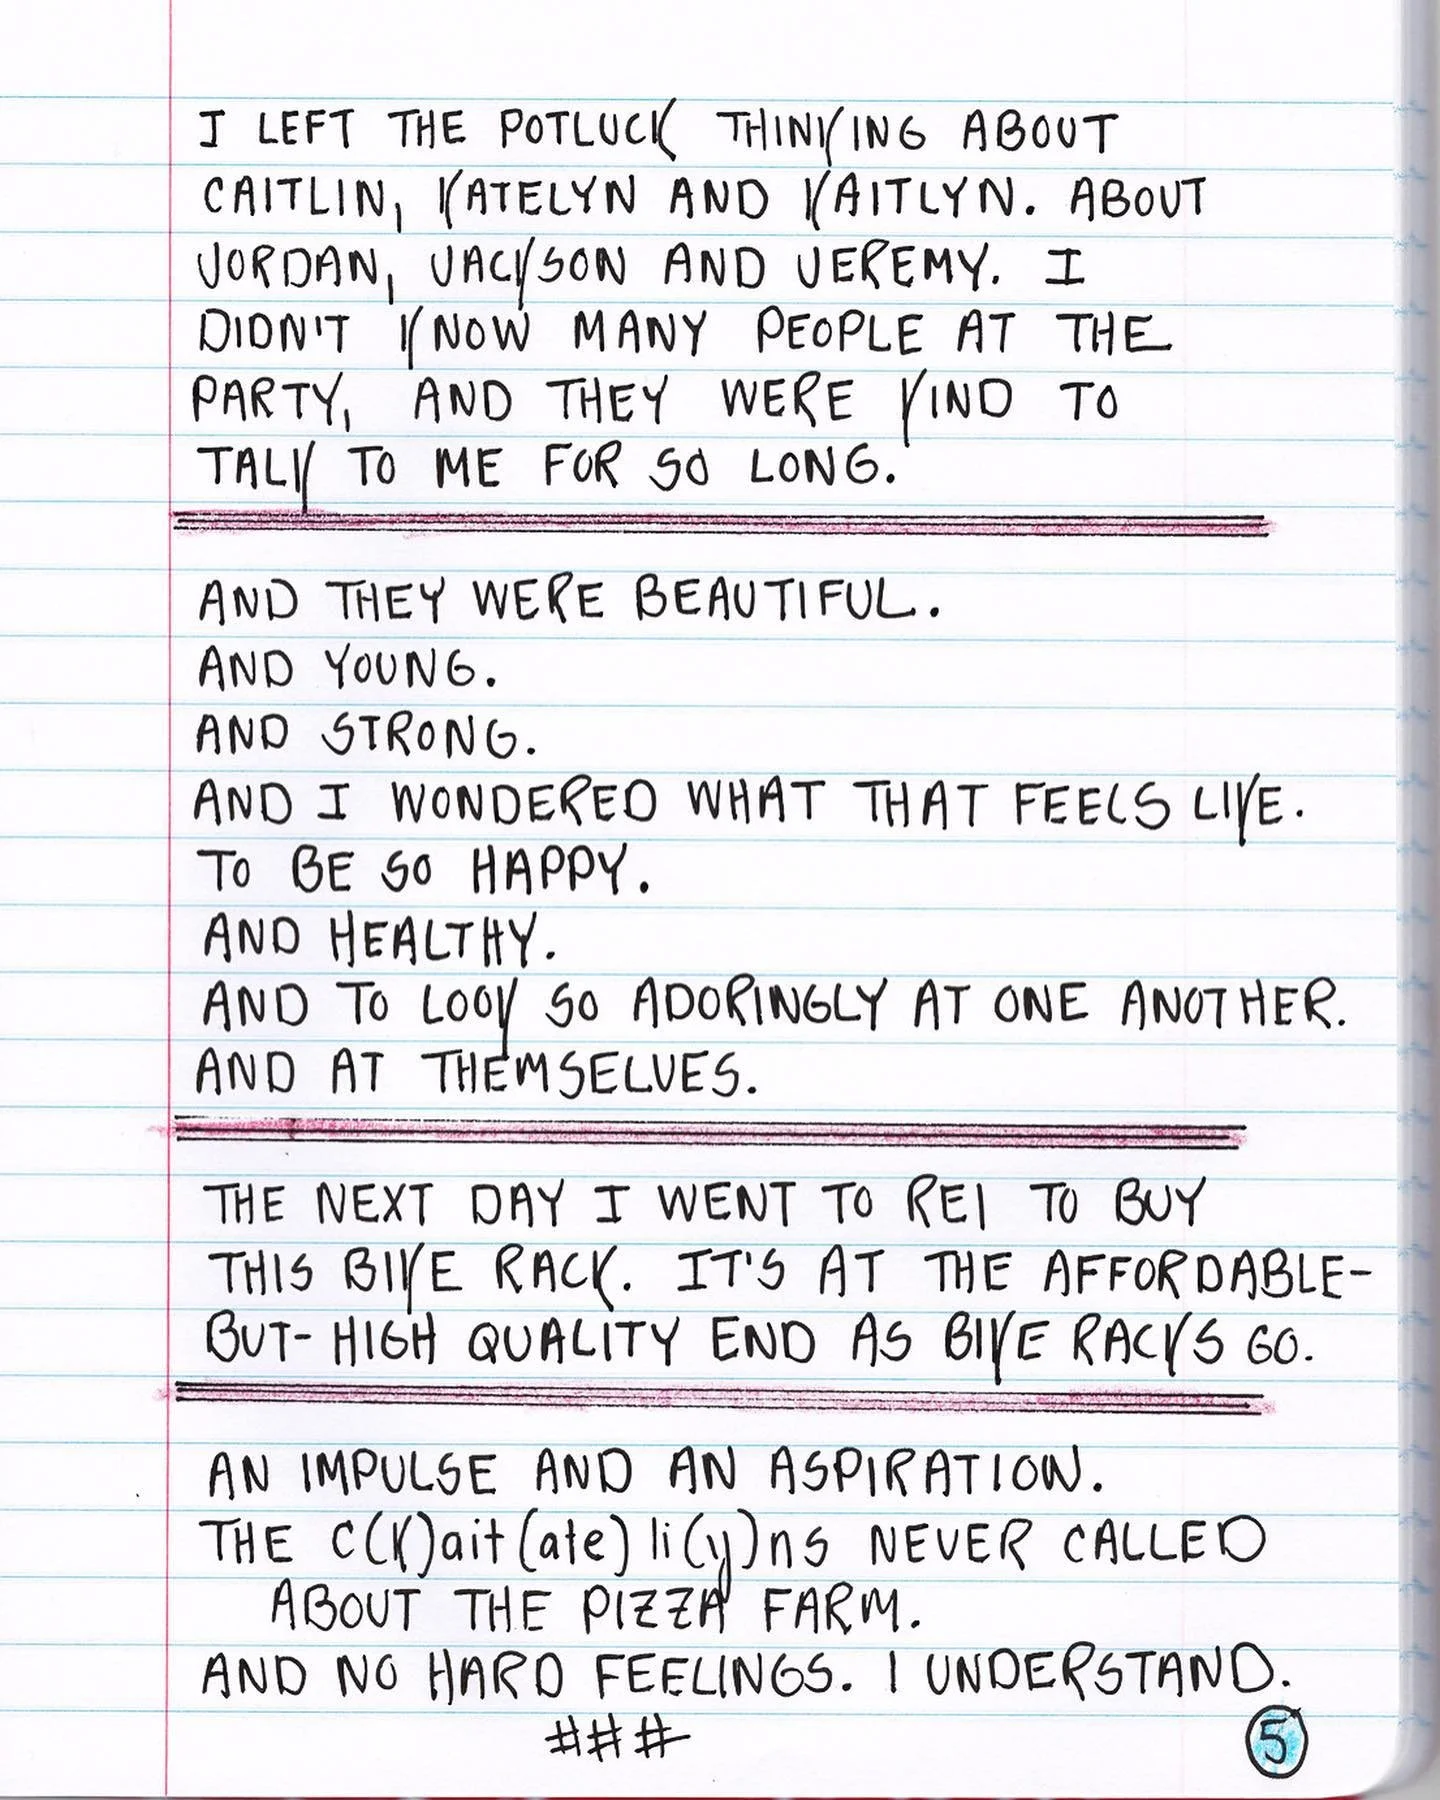 I LEFT THE POTLUCK THINKING ABOUT
CAITLIN, KATELYN AND KAITLYN. ABOUT
JORDAN, JACKSON AND JEREMY. I
DIDN'T KNOW MANY PEOPLE AT THE
PARTY, AND THEY WERE KIND TO
TALK TO ME FOR SO LONG.
AND THEY WERE BEAUTIFUL.
AND YOUNG.
AND STRONG.
AND I WONDERED WHAT THAT FEELS LIKE.
TO BE SO HAPPY.
AND HEALTHY.
AND TO LOOK SO ADORINGLY AT ONE ANOTHER.
AND AT THEMSELVES.
THE NEXT DAY I WENT TO REI TO BUY
THIS BIKE RACK. IT'S AT THE AFFORDABLE-
BUT-HIGH QUALITY END AS BIKE RACKS GO.
AN IMPULSE AND AN ASPIRATION.
THE C(K)ait(ate)li(y)ns NEVER CALLED
ABOUT THE PIZZA FARM.
AND NO HARD FEELINGS. I UNDERSTAND.
###
5